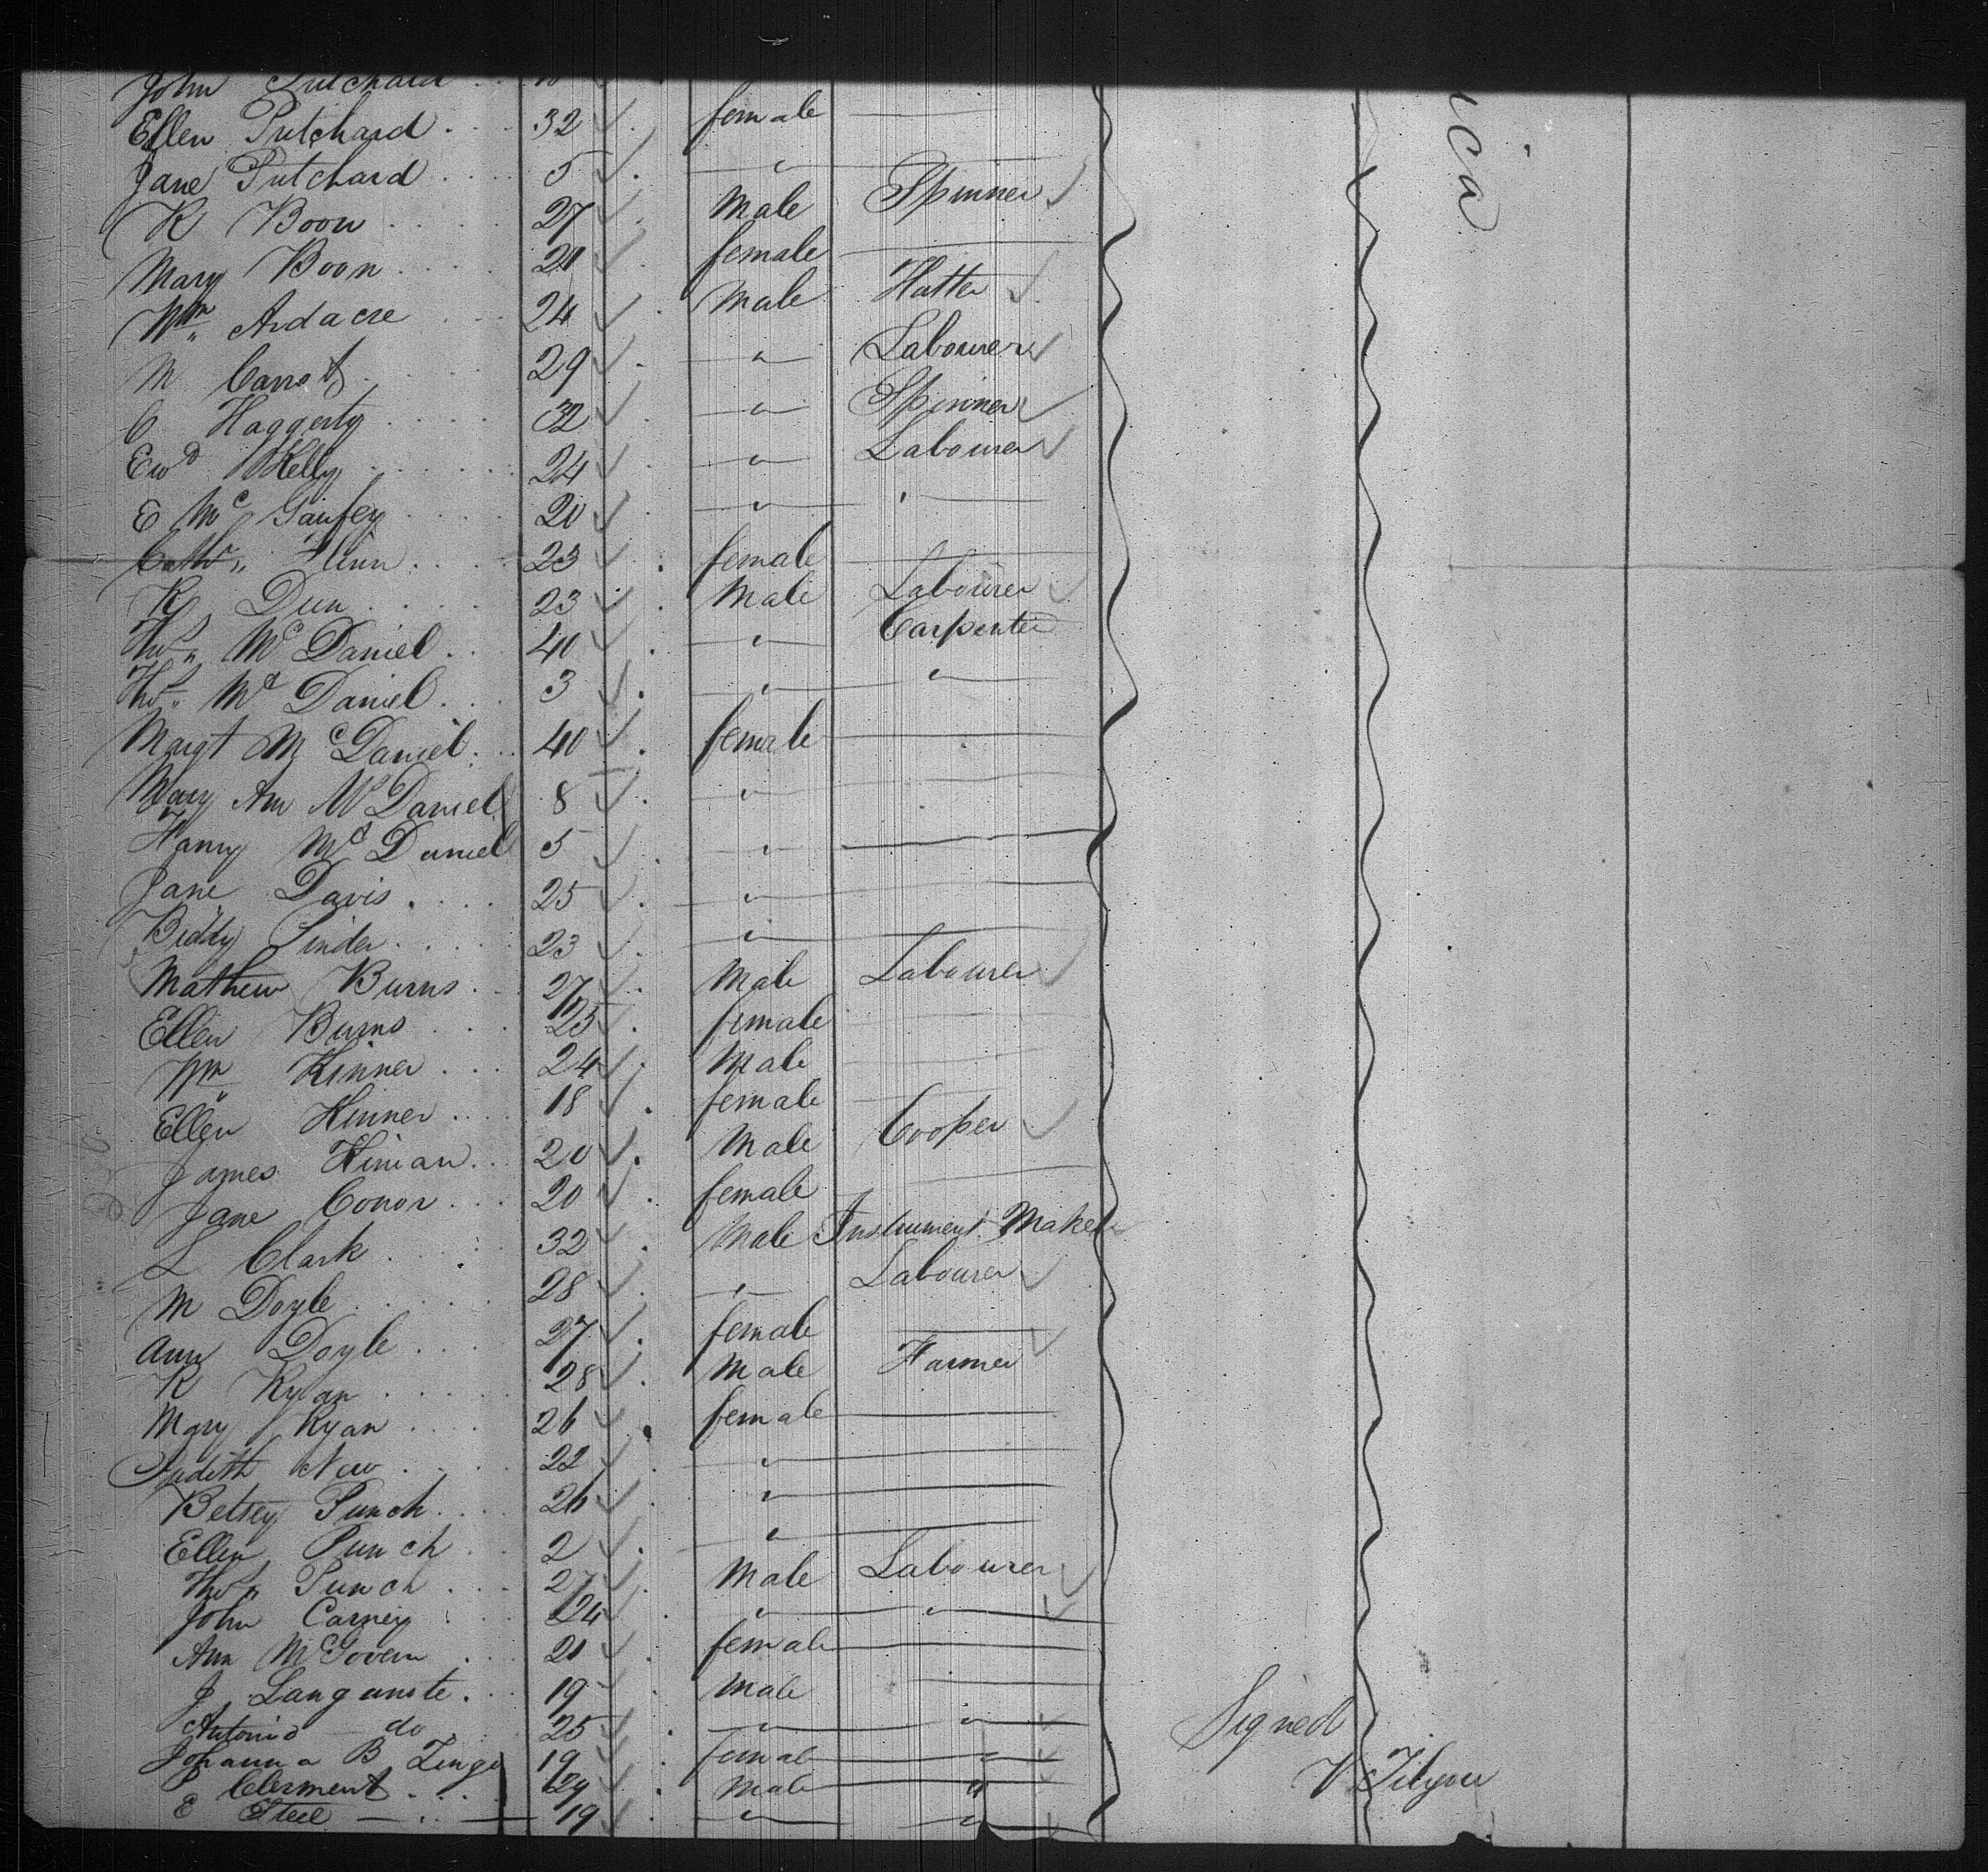 John Pritchard
Ellen Pritchard 32 female
Jane Pritchard 5 "
R Boon 27 Male Spinner
Mary Boon 20 female
Wm Ardacre 24 Male Hatter
M 29 " Labourer
C Haggerty 32 " Spinner
Ewd Kelly 24 " Labourer
E Mc 20 " '
Cathr Flinn 23 female
R Dun 23 Male Labourer
Thos Mc Daniel 40 " Carpenter
Thos Mc Daniel 3 " "
Margt Mc Daniel 40 female
Mary Ann Mc Daniel 8 "
Mc Daniel 5 "
Jane Davis 25 "
Biddy 23 "
Mathew Burns 27 Male Labourer
Ellen Burns 25 female
Wm Kinner 24 Male
Ellen Kinner 18 female
James Hinian 20 Male Cooper
Jane Conor 20 female
L Clark 32 Male Instrument Maker
M Doyle 28 " Labourer
Ann Doyle 27 female
R Ryan 28 Male Farmer
Mary Ryan 26 female
Judith New 22 "
Betsey Punch 26 "
Ellen Punch 2 "
Thos Punch 27 Male Labourer
John Carney 24 " "
Ann McGovern 20 female
J Langunste 19 Male
Antonio do 25 " "
Johanna B 19 female "
P Clerment 29 Male "
E Steel 19 " "
ica
Signed
V Tilyou